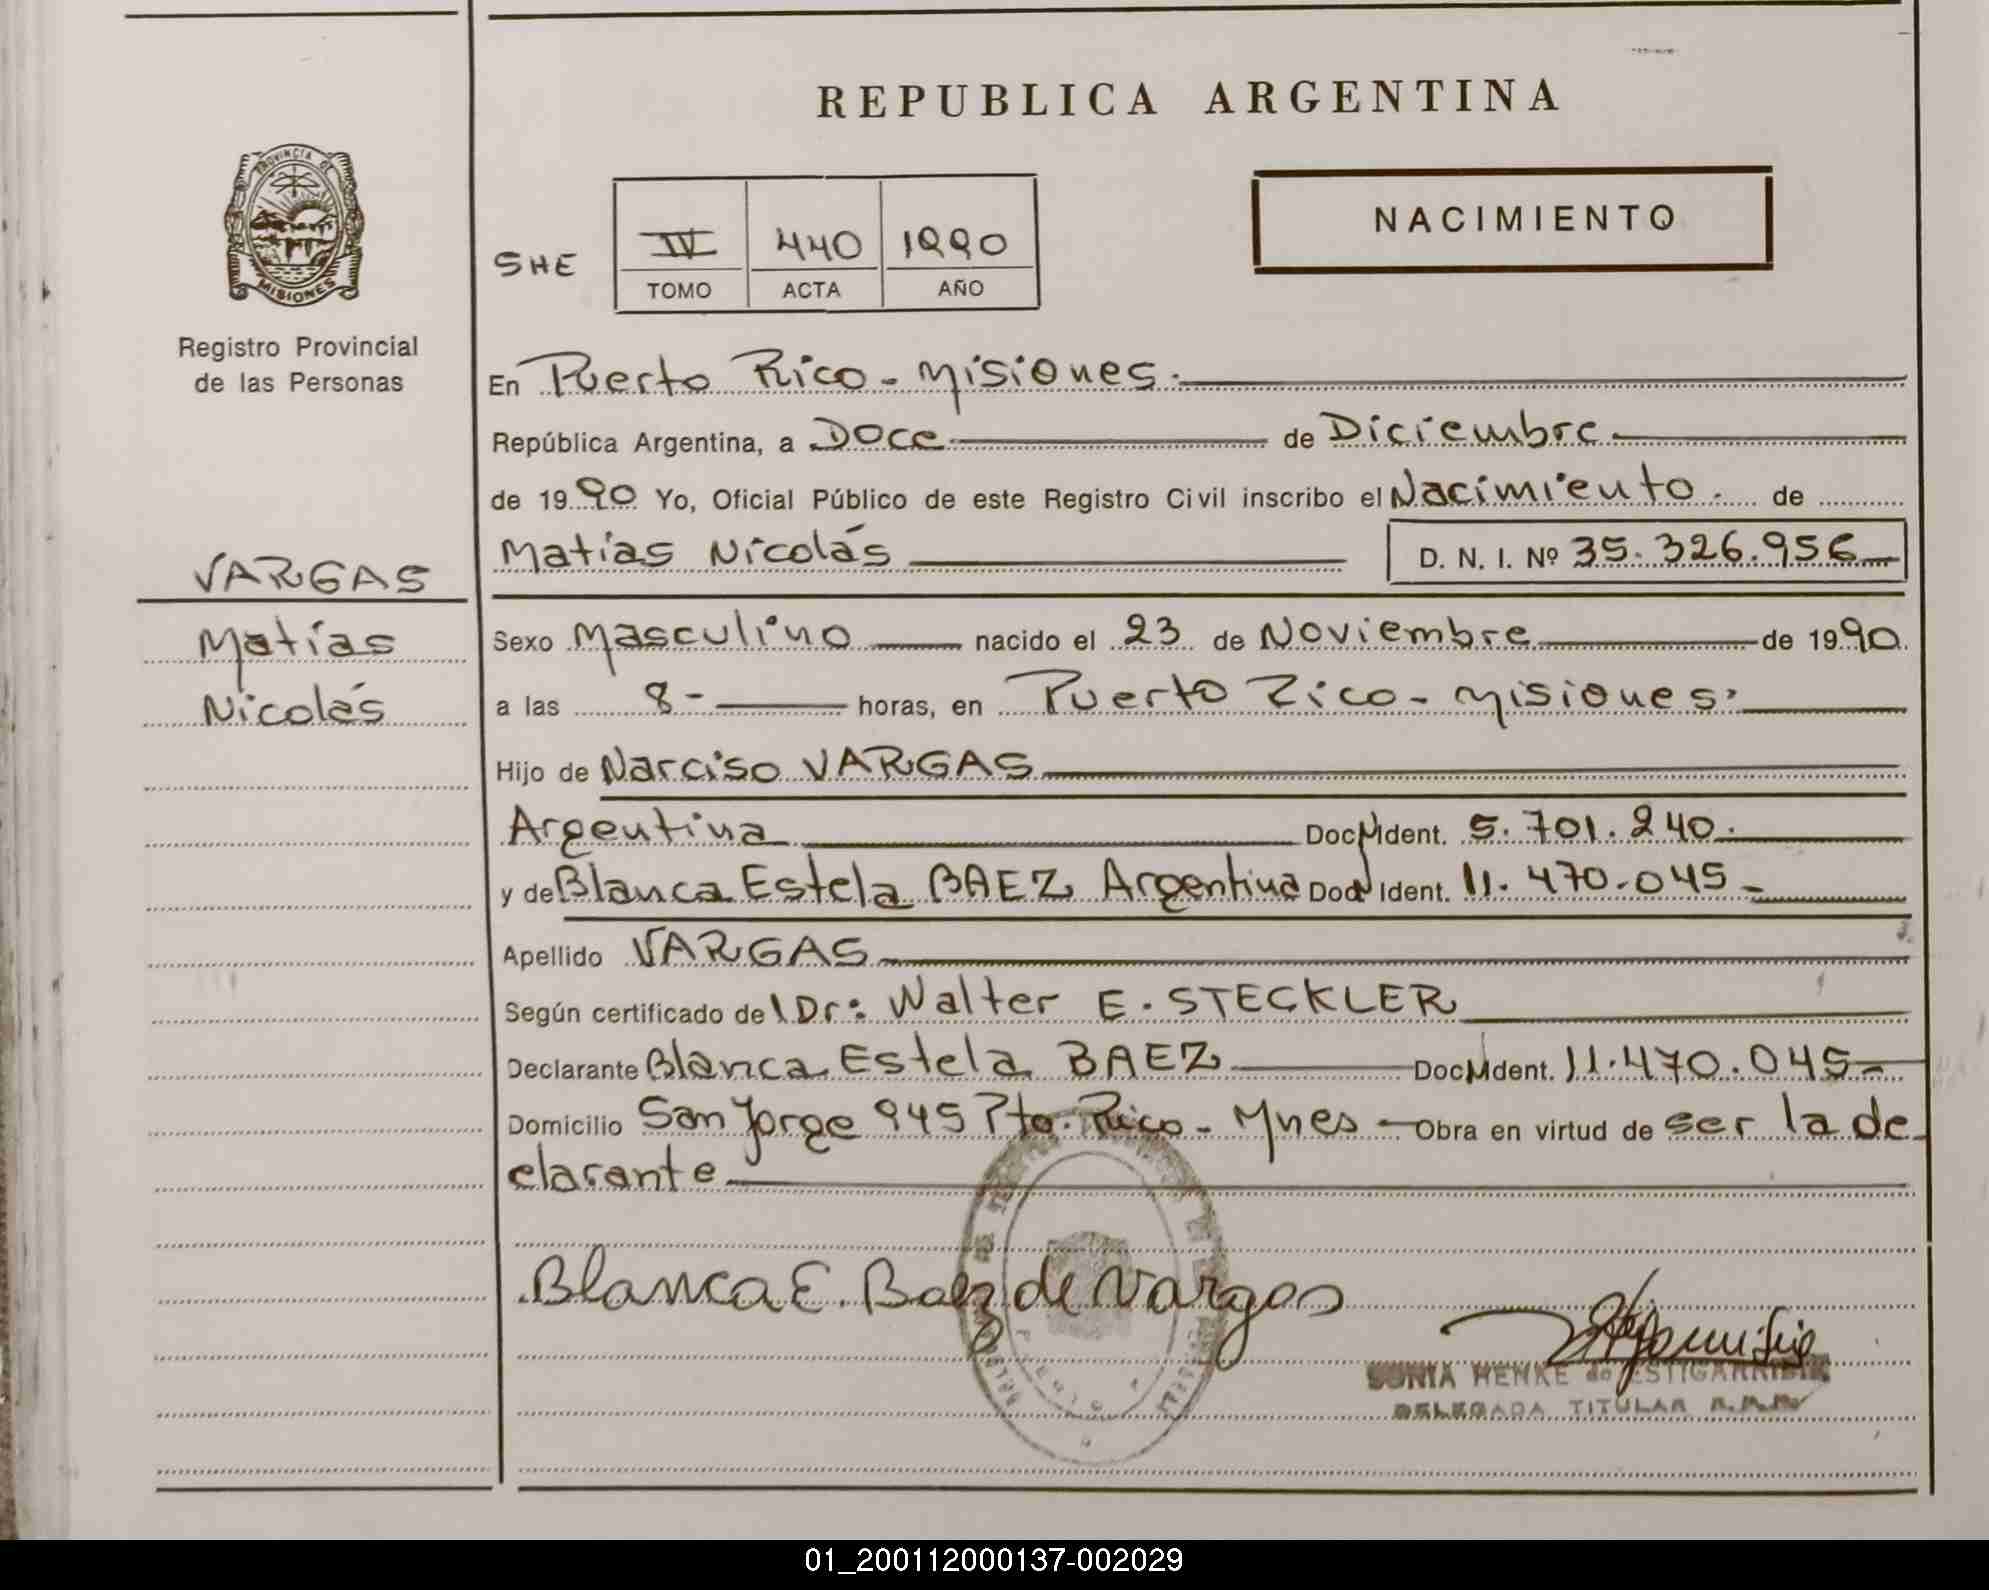 REPUBLICA ARGENTINA
PROVINCIA DE
MISIONES
Registro Provincial
de las Personas
NACIMIENTO
SHE IV 440 1990
TOMO ACTA AÑO
En Puerto Rico - Misiones.
República Argentina, a Doce de Diciembre
de 1990 Yo, Oficial Público de este Registro Civil inscribo el Nacimiento. de
VARGAS
Matías Nicolás D. N. I. Nº 35.326.956
Matías
Nicolás
Sexo Masculino nacido el 23 de Noviembre de 1990.
a las 8- horas, en Puerto Rico - Misiones.
Hijo de Narciso VARGAS
Argentina Doc Ident. 5.701.240.
y de Blanca Estela BAEZ Argentina Doc Ident. 11.470.045-
Apellido VARGAS
Según certificado del Dr: Walter E. STECKLER
Declarante Blanca Estela BAEZ Doc Ident. 11.470.045-
Domicilio San Jorge 945 Pto. Rico - Mnes - Obra en virtud de ser la de
clarante
Blanca E. Baez de Vargas
SONIA HENKE de ESTIGARRIBIA
DELEGADA TITULAR
01_200112000137-002029